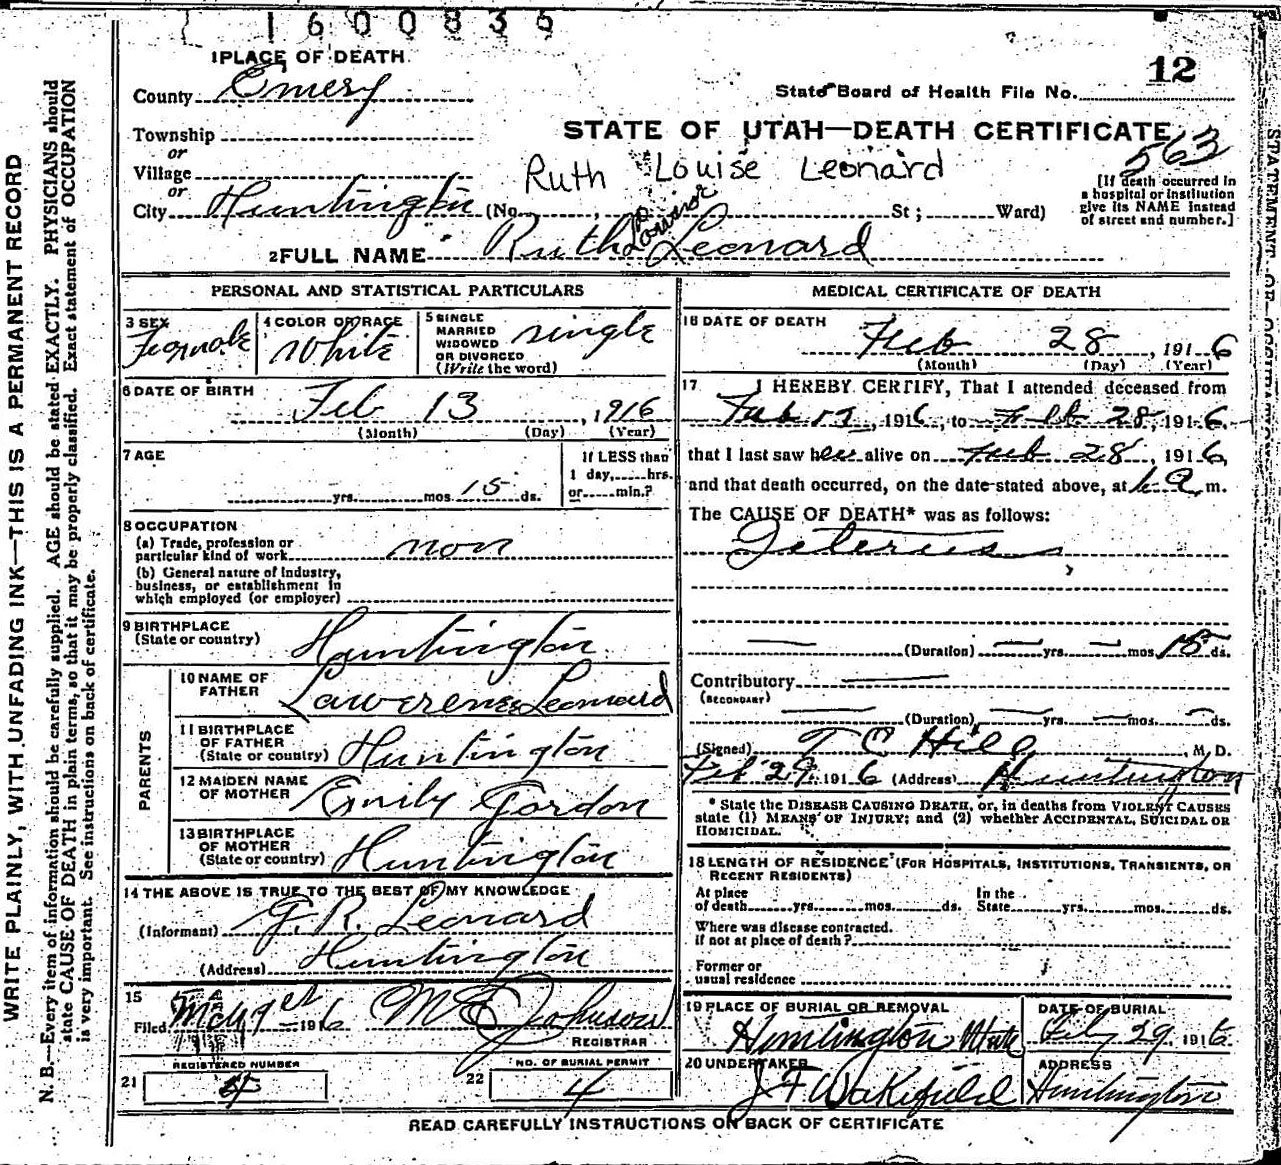 1600835
1 PLACE OF DEATH
12
County Emery
State Board of Health File No.
Township
STATE OF UTAH—DEATH CERTIFICATE
or
563
Village
Ruth Louise Leonard
or
[If death occurred in
a hospital or institution
give its NAME instead
of street and number.]
City Huntington (No. , St ; Ward)
Louise
2 FULL NAME Ruth Leonard
PERSONAL AND STATISTICAL PARTICULARS
3 SEX
Female
4 COLOR OR RACE
White
5 SINGLE
MARRIED
WIDOWED
OR DIVORCED
(Write the word)
single
6 DATE OF BIRTH
Feb 13, 1916
(Month) (Day) (Year)
7 AGE
yrs. mos. 15 ds.
If LESS than
1 day, hrs.
or min.?
8 OCCUPATION
(a) Trade, profession or
particular kind of work non
(b) General nature of industry,
business, or establishment in
which employed (or employer)
9 BIRTHPLACE
(State or country) Huntington
PARENTS
10 NAME OF
FATHER Lawrence Leonard
11 BIRTHPLACE
OF FATHER
(State or country) Huntington
12 MAIDEN NAME
OF MOTHER Emily Gordon
13 BIRTHPLACE
OF MOTHER
(State or country) Huntington
14 THE ABOVE IS TRUE TO THE BEST OF MY KNOWLEDGE
(Informant) J. R. Leonard
(Address) Huntington
15
Filed 1916 M E Johnson
REGISTRAR
REGISTERED NUMBER
21 4
NO. OF BURIAL PERMIT
22 4
MEDICAL CERTIFICATE OF DEATH
16 DATE OF DEATH
Feb 28, 1916
(Month) (Day) (Year)
17 I HEREBY CERTIFY, That I attended deceased from
Feb 17, 1916, to Feb 28, 1916.
that I last saw her alive on Feb 28, 1916,
and that death occurred, on the date stated above, at 6 a m.
The CAUSE OF DEATH* was as follows:
Icterus
(Duration) yrs. mos. 15 ds.
Contributory
(SECONDARY)
(Duration) yrs. mos. ds.
(Signed) T C Hill, M. D.
Feb 29, 1916 (Address) Huntington
* State the DISEASE CAUSING DEATH, or, in deaths from VIOLENT CAUSES
state (1) MEANS OF INJURY; and (2) whether ACCIDENTAL, SUICIDAL OR
HOMICIDAL.
18 LENGTH OF RESIDENCE (FOR HOSPITALS, INSTITUTIONS, TRANSIENTS, OR
RECENT RESIDENTS)
At place
of death yrs. mos. ds.
In the
State yrs. mos. ds.
Where was disease contracted.
if not at place of death?
Former or
usual residence
19 PLACE OF BURIAL OR REMOVAL
Huntington Utah
DATE OF BURIAL
Feby 29 1916
20 UNDERTAKER
J F Wakefield
ADDRESS
Huntington
READ CAREFULLY INSTRUCTIONS ON BACK OF CERTIFICATE
WRITE PLAINLY, WITH UNFADING INK—THIS IS A PERMANENT RECORD
N. B.—Every item of information should be carefully supplied. AGE should be stated EXACTLY. PHYSICIANS should
state CAUSE OF DEATH in plain terms, so that it may be properly classified. Exact statement of OCCUPATION
is very important. See instructions on back of certificate.
STATEMENT OF